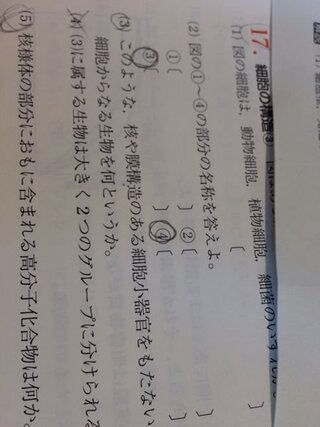 17. 細胞の構造③
(1) 図の細胞は，動物細胞，植物細胞，細菌のいずれか
〔 〕
(2) 図の①～④の部分の名称を答えよ。
①〔 〕 ②〔 〕
③〔 〕 ④〔 〕
(3) このような，核や膜構造のある細胞小器官をもたない
細胞からなる生物を何というか。
(4) (3)に属する生物は大きく2つのグループに分けられる
(5) 核様体の部分におもに含まれる高分子化合物は何か。